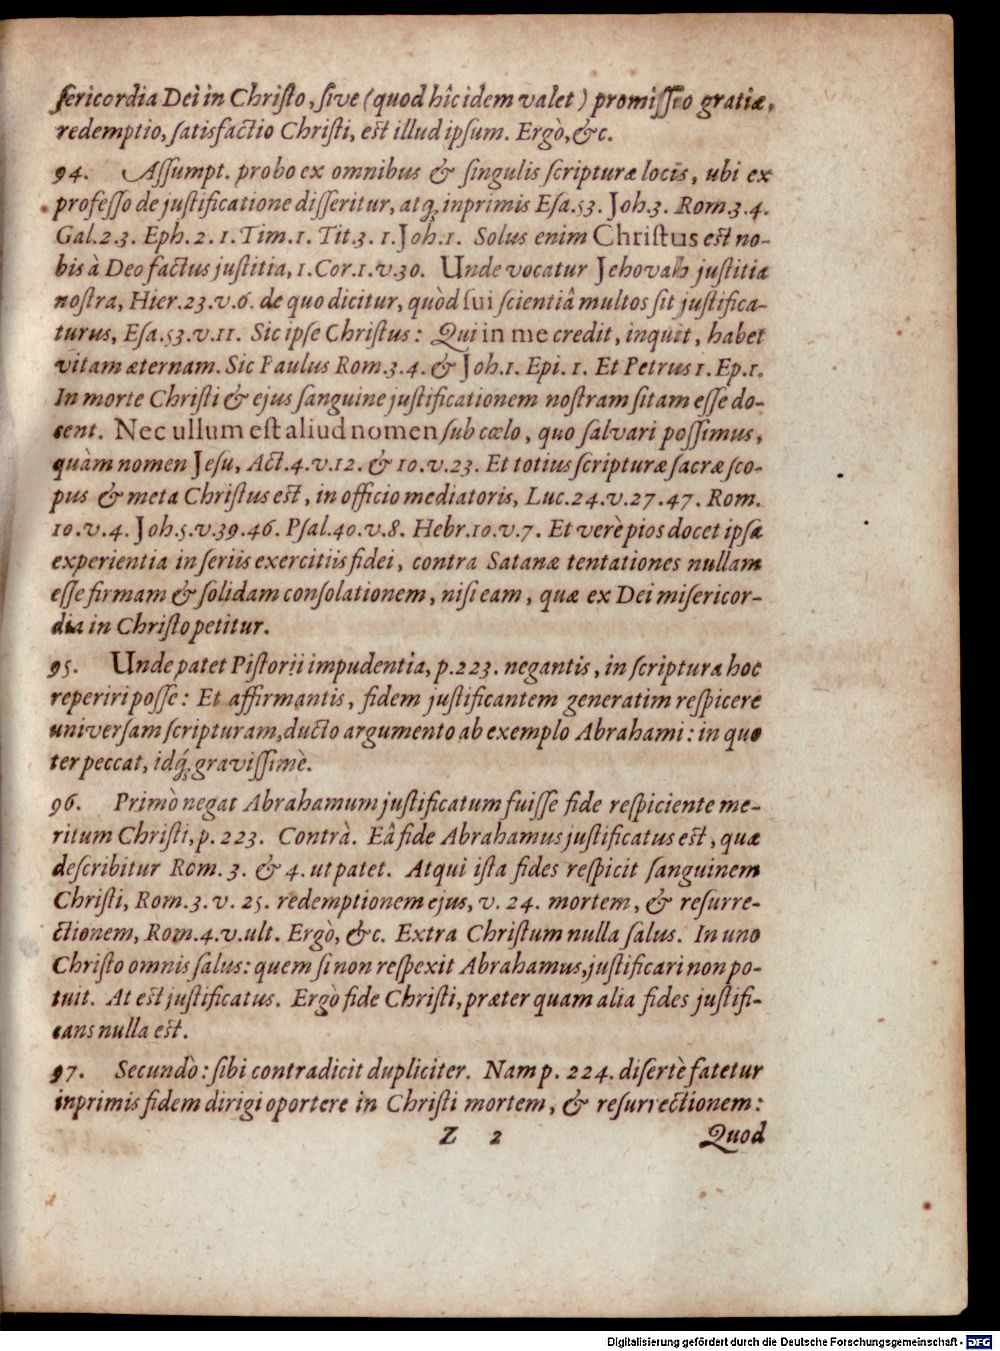 sericordia Dei in Christo, sive (quod hîc idem valet) promissio gratiæ,
redemptio, satisfactio Christi, est illud ipsum. Ergò, &c.
94. Assumpt. probo ex omnibus & singulis scripturæ locis, ubi ex
professo de justificatione disseritur, atq; inprimis Esa.53. Joh.3. Rom.3.4.
Gal.2.3. Eph.2. 1.Tim.1. Tit.3. 1.Joh.1. Solus enim Christus est no-
bis à Deo factus justitia, 1.Cor.1.v.30. Unde vocatur Jehovah justitia
nostra, Hier.23.v.6. de quo dicitur, quòd sui scientiâ multos sit justifica-
turus, Esa.53.v.11. Sic ipse Christus: Qui in me credit, inquit, habet
vitam æternam. Sic Paulus Rom.3.4. & Joh.1. Epi.1. Et Petrus 1.Ep.1.
In morte Christi & ejus sanguine justificationem nostram sitam esse do-
cent. Nec ullum est aliud nomen sub cœlo, quo salvari possimus,
quàm nomen Jesu, Act.4.v.12. & 10.v.23. Et totius scripturæ sacræ sco-
pus & meta Christus est, in officio mediatoris, Luc.24.v.27.47. Rom.
10.v.4. Joh.5.v.39.46. Psal.40.v.8. Hebr.10.v.7. Et verè pios docet ipsa
experientia in seriis exercitiis fidei, contra Satanæ tentationes nullam
esse firmam & solidam consolationem, nisi eam, quæ ex Dei misericor-
dia in Christo petitur.
95. Unde patet Pistorii impudentia, p.223. negantis, in scriptura hoc
reperiri posse: Et affirmantis, fidem justificantem generatim respicere
universam scripturam, ducto argumento ab exemplo Abrahami: in quo
ter peccat, idq; gravissimè.
96. Primò negat Abrahamum justificatum fuisse fide respiciente me-
ritum Christi, p. 223. Contrà. Eâ fide Abrahamus justificatus est, quæ
describitur Rom. 3. & 4. ut patet. Atqui ista fides respicit sanguinem
Christi, Rom.3.v. 25. redemptionem ejus, v. 24. mortem, & resurre-
ctionem, Rom.4.v.ult. Ergò, &c. Extra Christum nulla salus. In uno
Christo omnis salus: quem si non respexit Abrahamus, justificari non po-
tuit. At est justificatus. Ergò fide Christi, præter quam alia fides justifi-
cans nulla est.
97. Secundò: sibi contradicit dupliciter. Nam p. 224. disertè fatetur
inprimis fidem dirigi oportere in Christi mortem, & resurrectionem:
Z 2 Quod
Digitalisierung gefördert durch die Deutsche Forschungsgemeinschaft - DFG